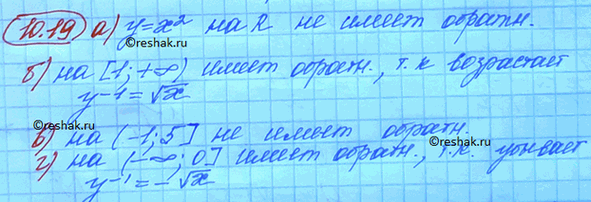 10.19 а) y=x² на R не имеет обратн.
©reshak.ru
©reshak.ru
б) на [1;+∞) имеет обратн., т.к возрастает
y⁻¹=√x
©reshak.ru
в) на (-1;5] не имеет обратн.
г) на (-∞;0] имеет обратн., т.к. убывает
y⁻¹=-√x
©reshak.ru